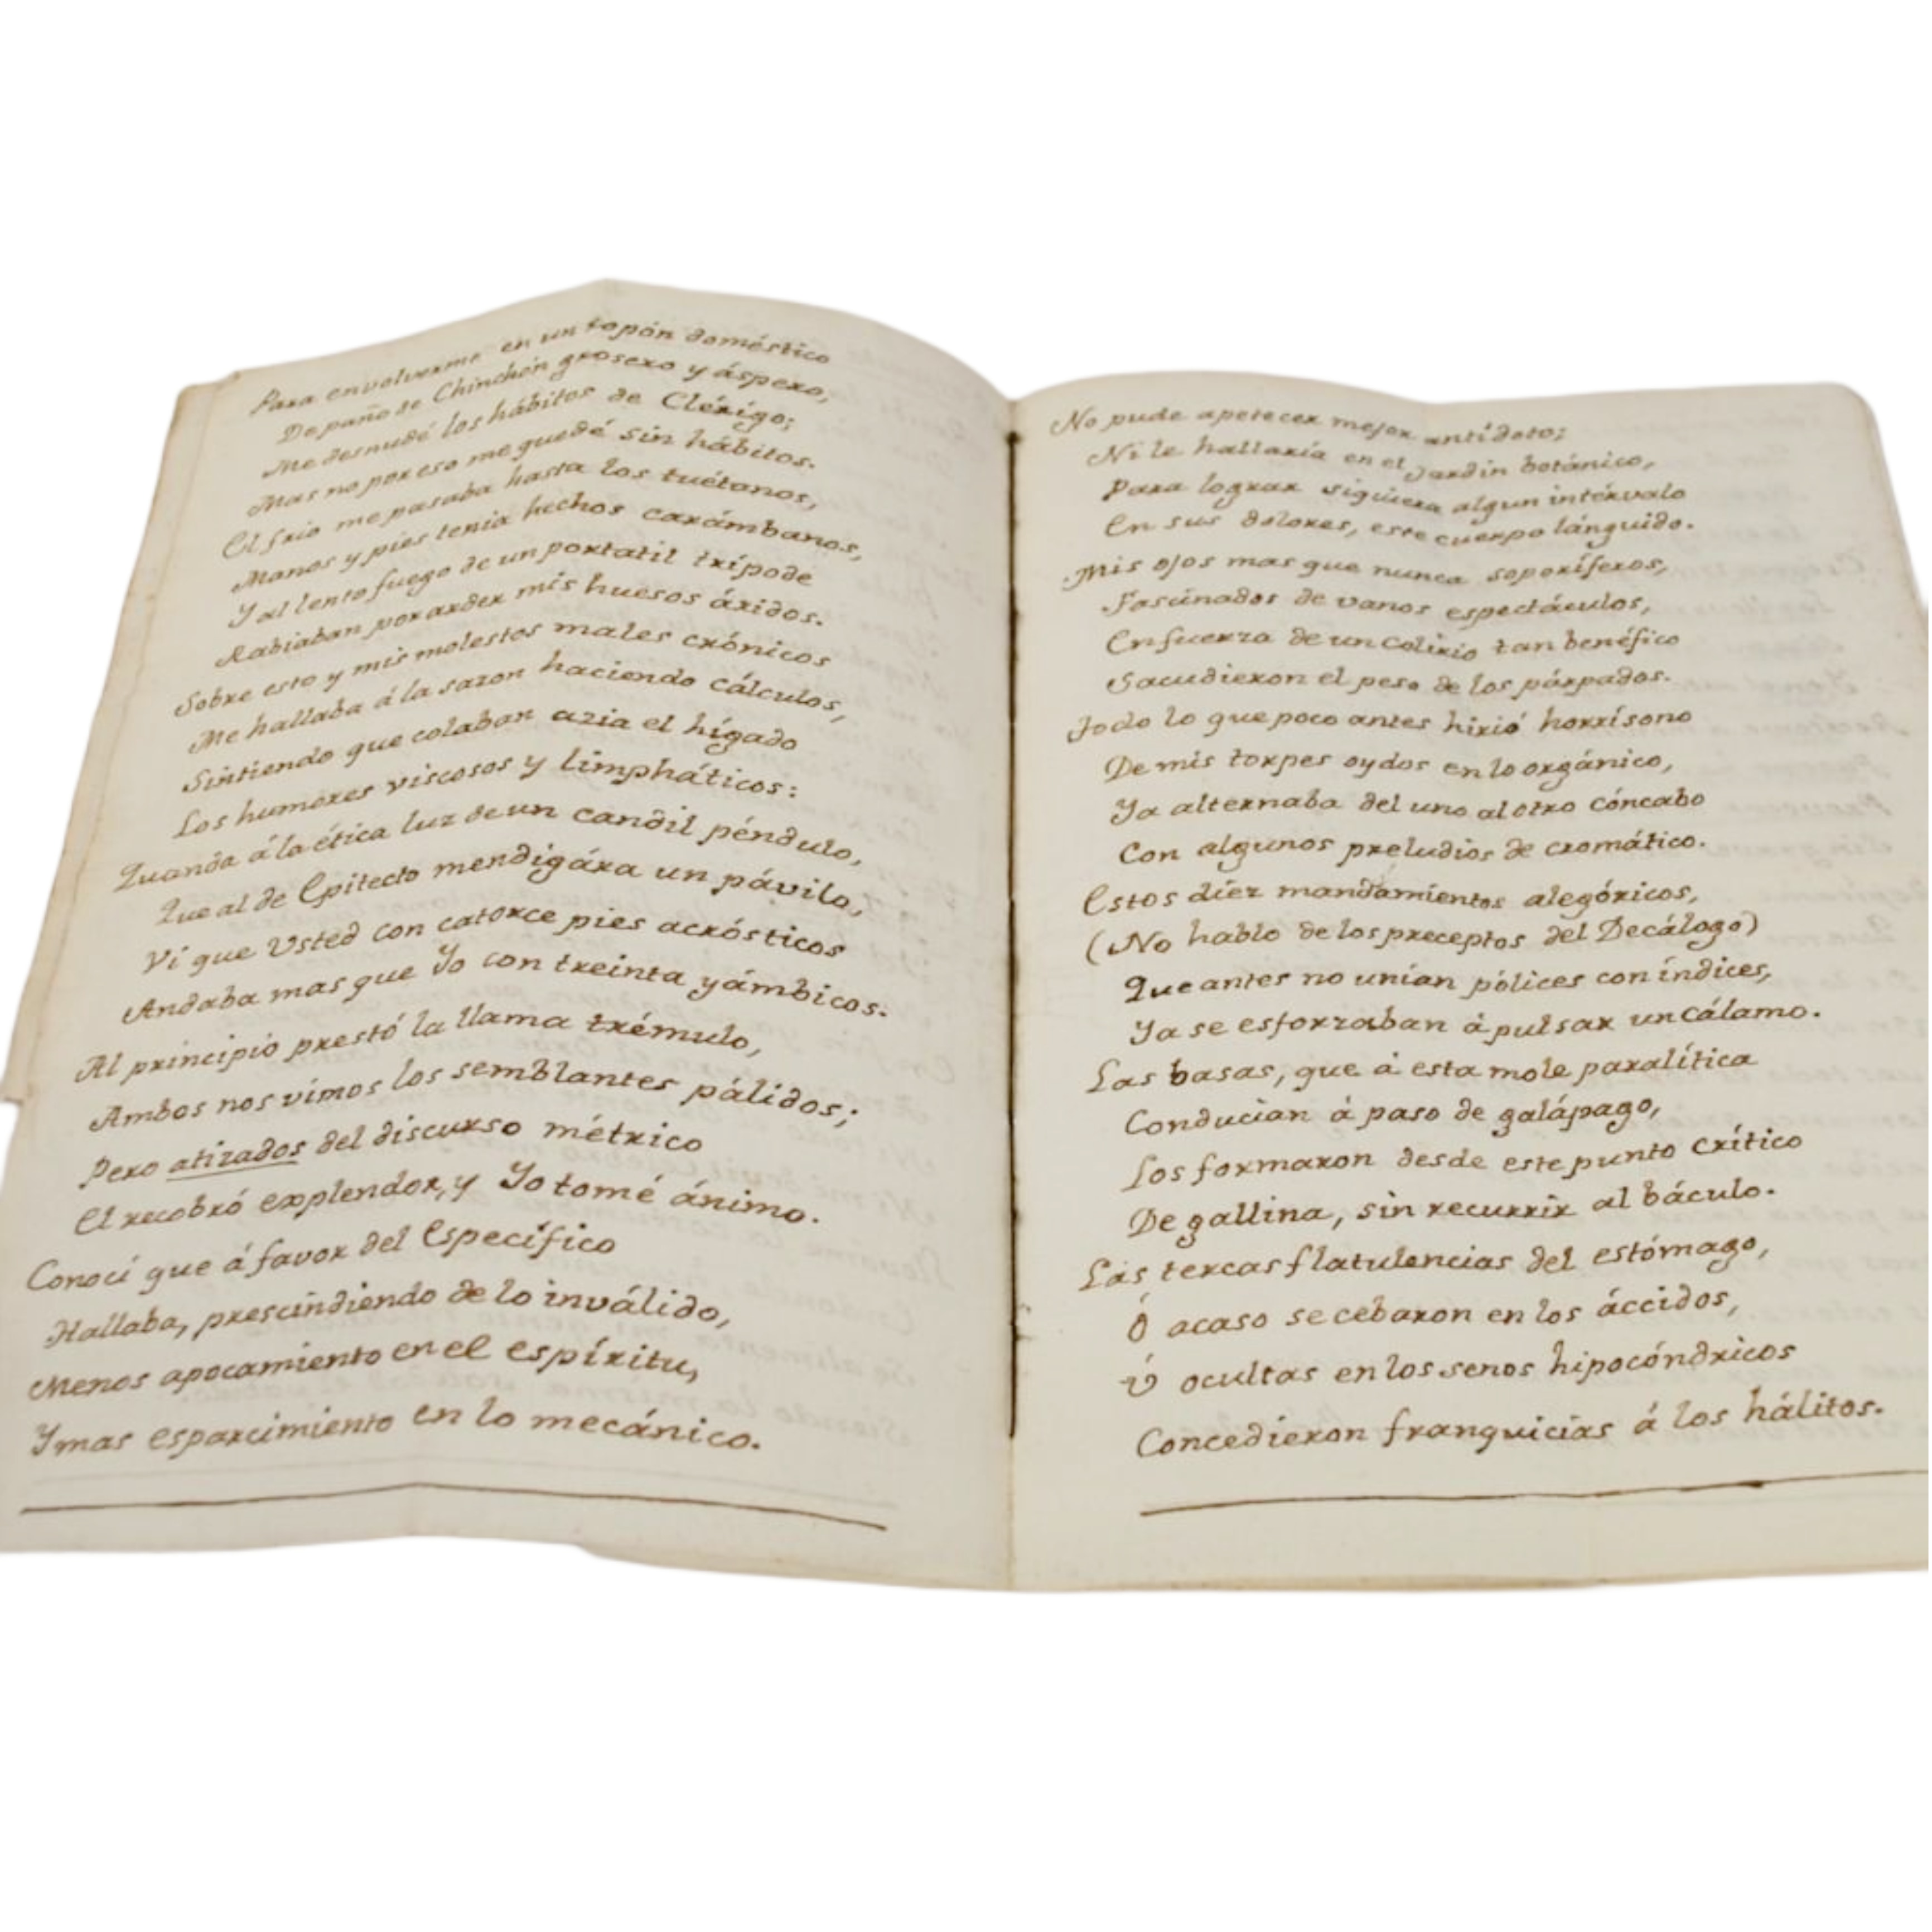 Para envolverme en un ropón doméstico
De paño de Chinchón grosero y áspero,
Me desnudé los hábitos de Clérigo;
Mas no por eso me quedé sin hábitos.
El frio me pasaba hasta los tuétanos,
Manos y pies tenia hechos carámbanos,
Y al lento fuego de un portatil trípode
Rabiaban por arder mis huesos áridos.
Sobre esto y mis molestos males crónicos
Me hallaba á la sazon haciendo cálculos,
Sintiendo que colaban azia el hígado
Los humores viscosos y limpháticos:
Quando á la ética luz de un candil péndulo,
Que al de Epitecto mendigára un pávilo,
Ví que Usted con catorce pies acrósticos
Andaba mas que Yo con treinta yámbicos.
Al principio prestó la llama trémulo,
Ambos nos vimos los semblantes pálidos;
Pero atizados del discurso métrico
El recobró explendor, y Yo tomé ánimo.
Conocí que á favor del Específico
Hallaba, prescindiendo de lo inválido,
Menos apocamiento en el espíritu,
Y mas esparcimiento en lo mecánico.
No pude apetecer mejor antídoto;
Ni le hallaría en el Jardin botánico,
Para lograr siquiera algun intérvalo
En sus dolores, este cuerpo lánguido.
Mis ojos mas que nunca soporíferos,
Fascinados de vanos espectáculos,
En fuerza de un colirio tan benéfico
Sacudieron el peso de los párpados.
Todo lo que poco antes hirió horrísono
De mis torpes oydos en lo orgánico,
Ya alternaba del uno al otro cóncabo
Con algunos preludios de cromático.
Estos diez mandamientos alegóricos,
(No hablo de los preceptos del Decálogo)
Que antes no unían pólices con índices,
Ya se esforzaban á pulsar un cálamo.
Las basas, que á esta mole paralítica
Conducian á paso de galápago,
Los formaron desde este punto crítico
De gallina, sin recurrir al báculo.
Las tercas flatulencias del estómago,
Ó acaso se cebaron en los áccidos,
Ú ocultas en los senos hipocóndricos
Concedieron franquicias á los hálitos.